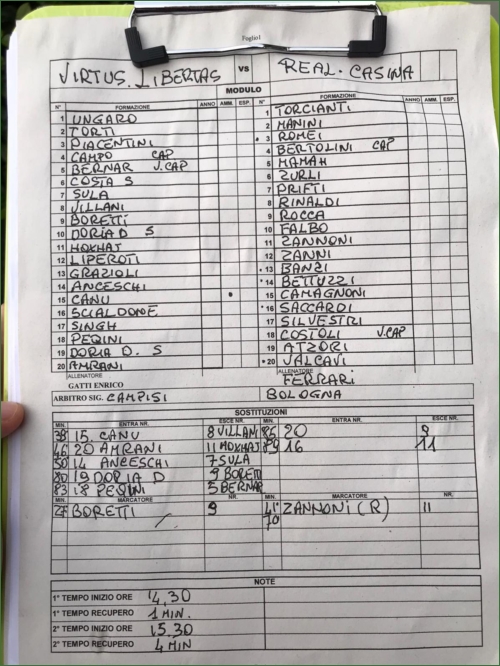 Foglio1
VIRTUS. LIBERTAS vs REAL. CASINA
MODULO
N° FORMAZIONE ANNO AMM. ESP. N° FORMAZIONE ANNO AMM. ESP.
1 UNGARO 1 TORCIANTI
2 TORTI 2 MANINI
3 PIACENTINI 3 ROMEI
4 CAMPO CAP 4 BERTOLINI CAP
5 BERNAR V.CAP 5 MAMAH
6 COSTA S 6 ZURLI
7 SULA 7 PRIFTI
8 VILLANI 8 RINALDI
9 BORETTI 9 ROCCA
10 DORIA D S 10 FALBO
11 HOXHAJ 11 ZANNONI
12 LIPEROTI 12 ZANNI
13 GRAZIOLI 13 BANZI
14 ANCESCHI 14 BETTUZZI
15 CANU 15 CAMAGNONI
16 SCIALDONE 16 SACCARDI
17 SINGH 17 SILVESTRI
18 PEQINI 18 COSTOLI V.CAP
19 DORIA D. S 19 ATZORI
20 AMRANI 20 VALCAVI
ALLENATORE ALLENATORE
GATTI ENRICO FERRARI
ARBITRO SIG. CAMPISI BOLOGNA
SOSTITUZIONI
MIN. ENTRA NR. ESCE NR. MIN. ENTRA NR. ESCE NR.
38 15. CANU 8 VILLANI 86 20 9
46 20 AMRANI 11 HOXHAJ 89 16 11
50 14 ANCESCHI 7 SULA
80 19 DORIA D 9 BORETTI
83 18 PEQINI 5 BERNAR
MIN. MARCATORE NR. MIN. MARCATORE NR.
27 BORETTI 9 41 ZANNONI (R) 11
70
NOTE
1° TEMPO INIZIO ORE 14,30
1° TEMPO RECUPERO 1 MIN.
2° TEMPO INIZIO ORE 15.30
2° TEMPO RECUPERO 4 MIN